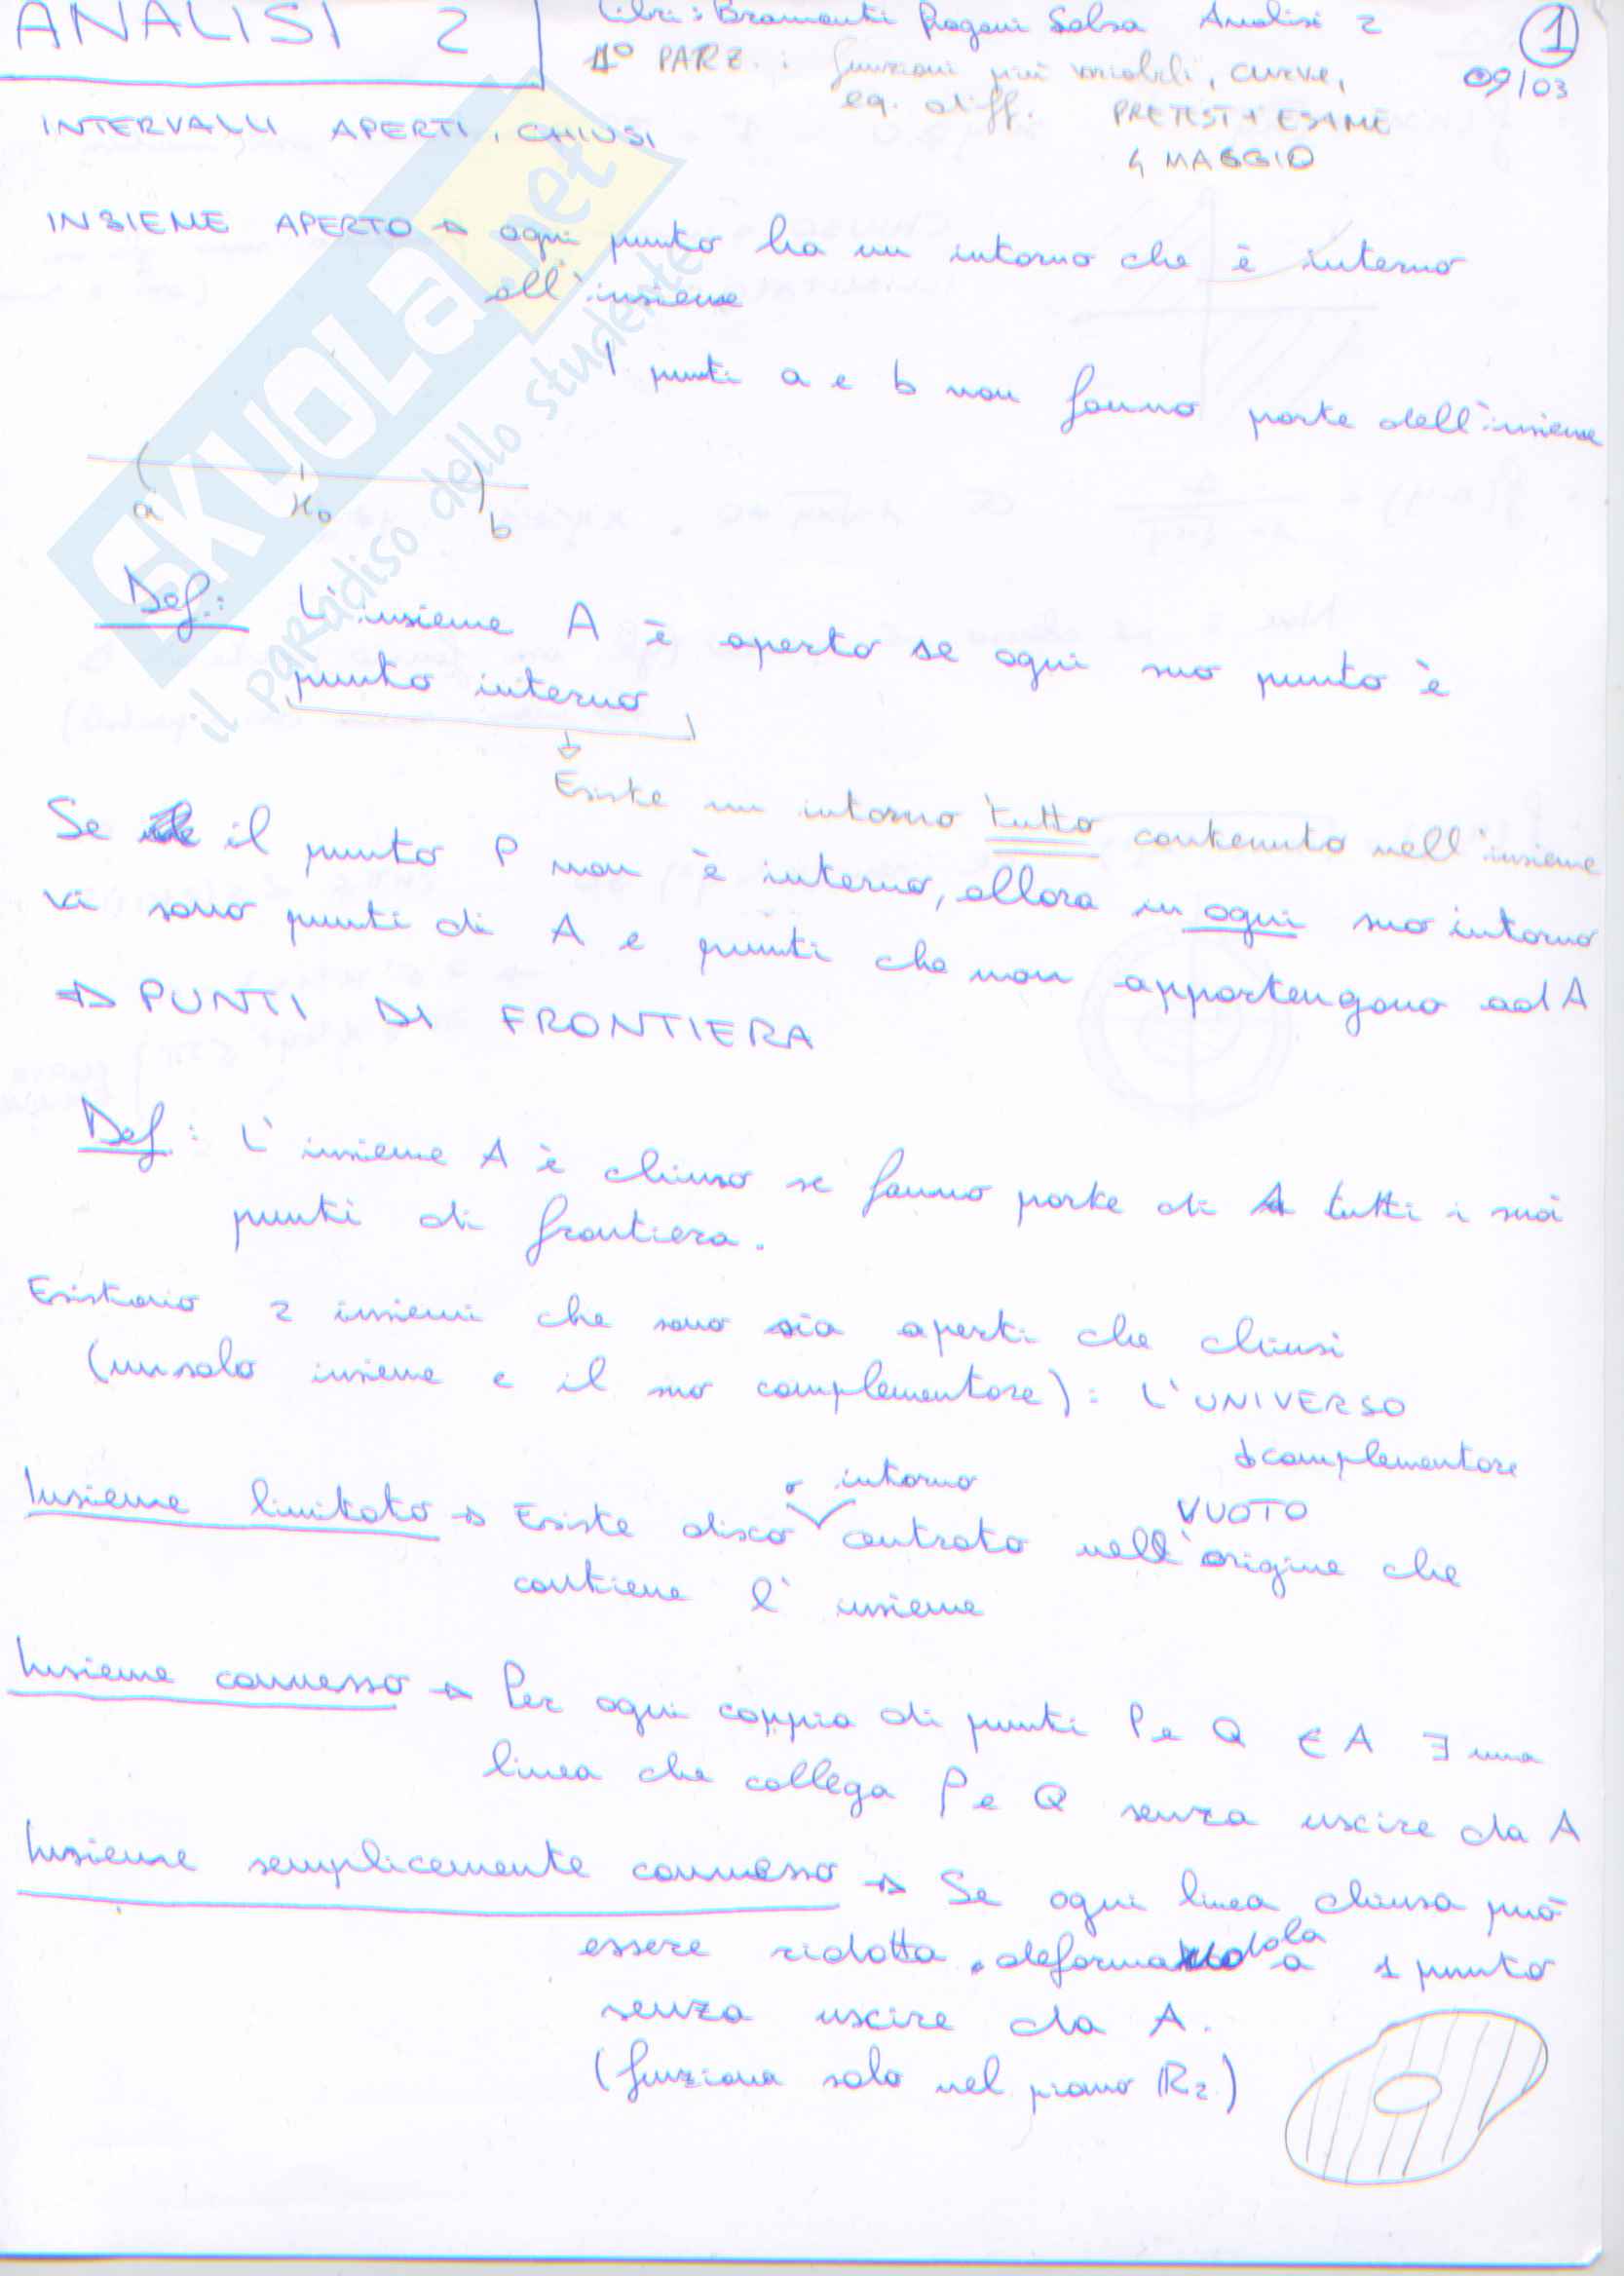 ANALISI 2
Libri: Bramanti Pagani Salsa Analisi 2
1
1° PARZ.: funzioni più variabili, curve,
09/03
eq. diff. PRETEST + ESAME
4 MAGGIO
INTERVALLI APERTI, CHIUSI
INSIEME APERTO → ogni punto ha un intorno che è interno
all'insieme
I punti a e b non fanno parte dell'insieme
a x₀ b
Def.: L'insieme A è aperto se ogni suo punto è
punto interno
Esiste un intorno tutto contenuto nell'insieme
Se il punto P non è interno, allora in ogni suo intorno
vi sono punti di A e punti che non appartengono ad A
⇒ PUNTI DI FRONTIERA
Def: L'insieme A è chiuso se fanno parte di A tutti i suoi
punti di frontiera.
Esistono 2 insiemi che sono sia aperti che chiusi
(un solo insieme e il suo complementare): L'UNIVERSO
↓ complementare
VUOTO
Insieme limitato → Esiste disco o intorno centrato nell'origine che
contiene l'insieme
Insieme connesso → Per ogni coppia di punti P e Q ∈ A ∃ una
linea che collega P e Q senza uscire da A
Insieme semplicemente connesso → Se ogni linea chiusa può
essere ridotta, deformandola a 1 punto
senza uscire da A.
(funziona solo nel piano R₂)
SKUOLA.net
il paradiso dello studente